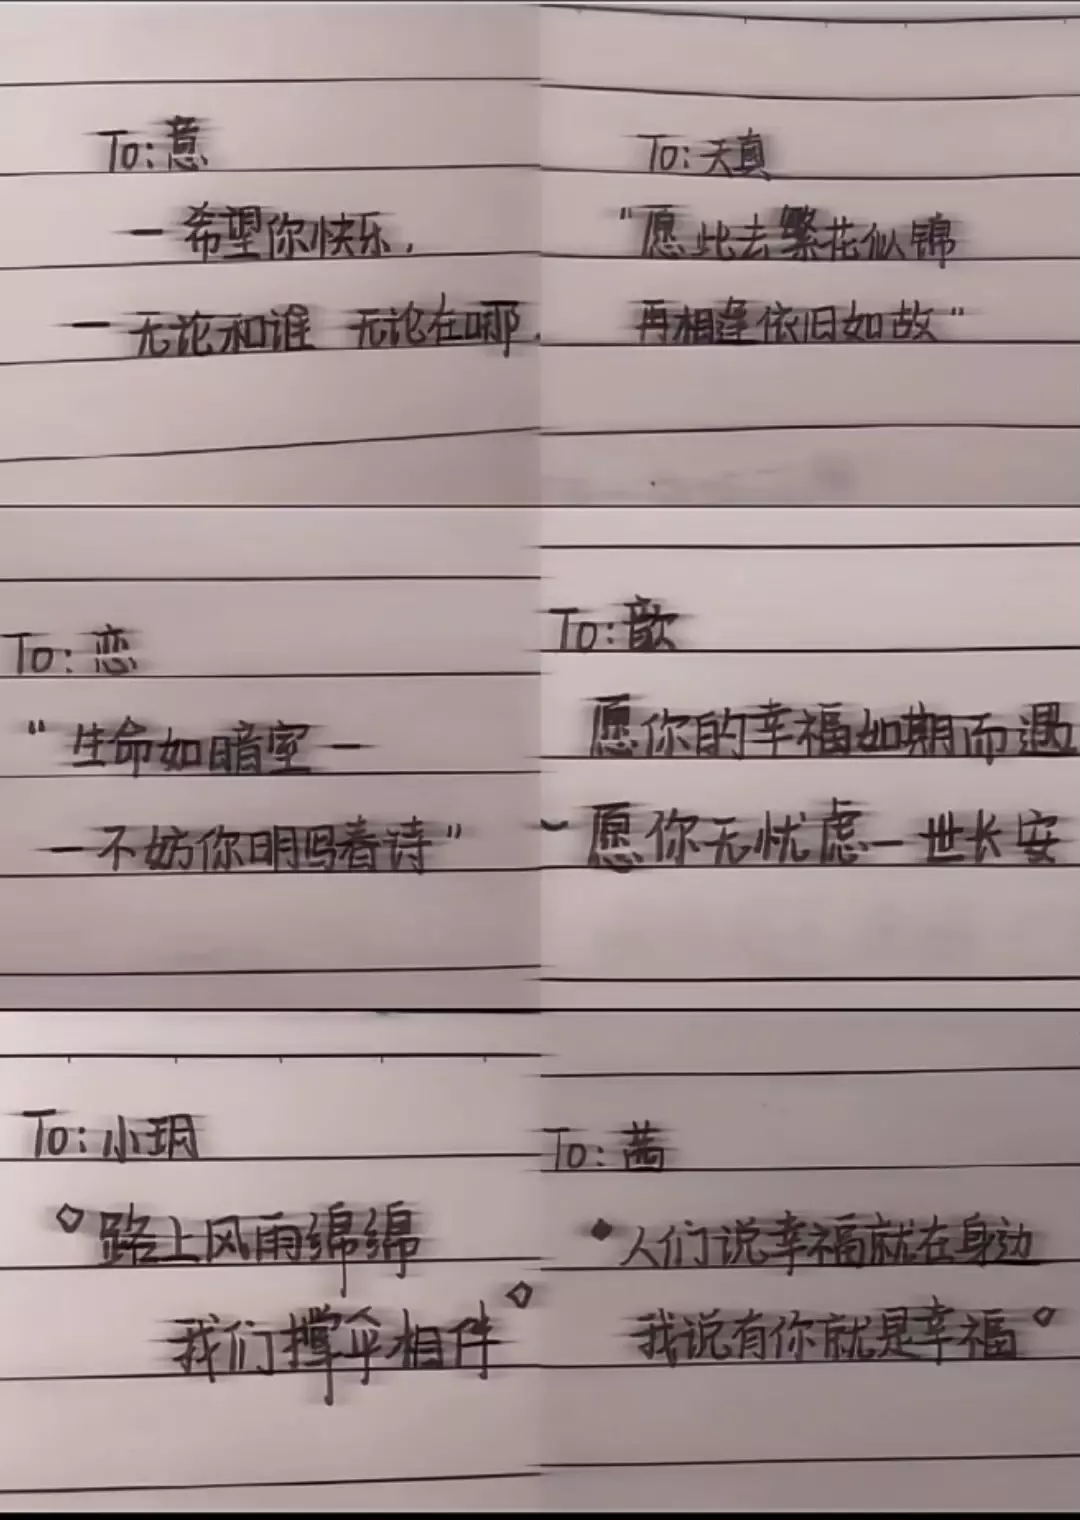 To: 意
一希望你快乐.
一无论和谁 无论在哪.
To: 天真
"愿此去繁花似锦
再相逢依旧如故"
To: 恋
"生命如暗室一
一不妨你明写春诗"
To: 歆
愿你的幸福如期而遇
~愿你无忧虑一世长安
To: 小玥
◇路上风雨绵绵
我们撑伞相伴◇
To: 茜
◆人们说幸福就在身边
我说有你就是幸福◇